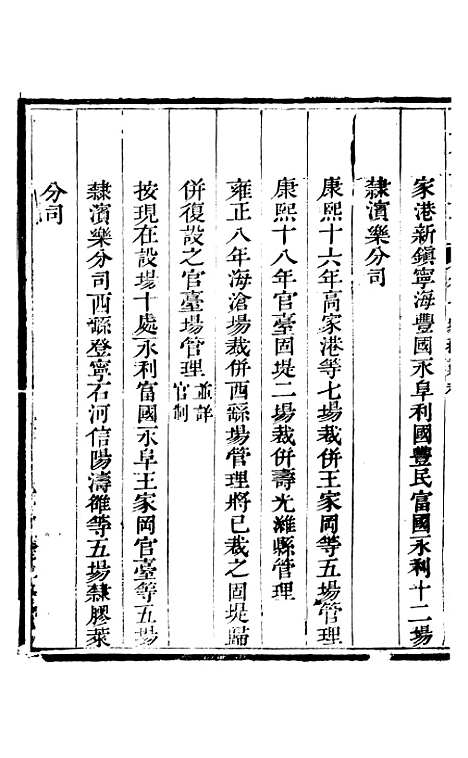 家港新鎮寧海豐國永阜利國豐民富國永利十二場
隸濱樂分司
康熙十六年高家港等七場裁併王家岡等五場管理
康熙十八年官臺固堤二場裁併壽光濰縣管理
雍正八年海滄場裁併西繇場管理將已裁之固堤歸
併復設之官臺場管理並詳官制
按現在設場十處永利富國永阜王家岡官臺等五場
隸濱樂分司西繇登寧石河信陽濤雒等五場隸膠萊
分司